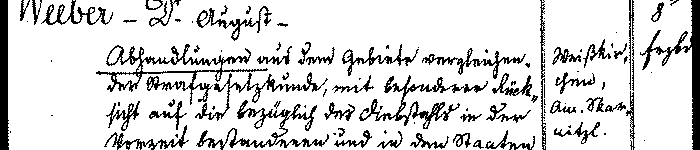 Weeber - Dr August -
8°
Abhandlungen aus dem Gebiete vergleichen-
der Strafgesetzkunde, mit besonderer Rück-
sicht auf die bezüglich des Diebstahls in der
Vorzeit bestandenen und in den Staaten
Weißkir-
chen,
Aur. Skar-
nitzl.